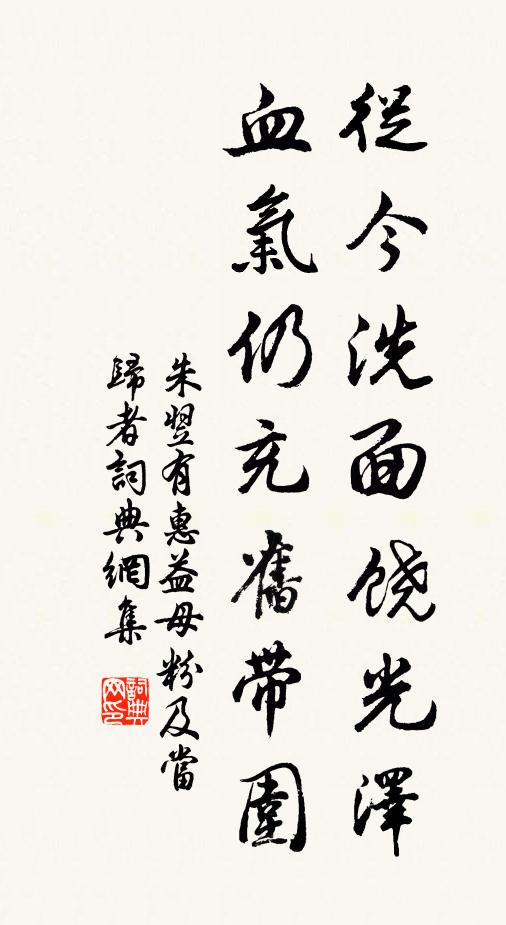 從今洗面饒光澤
血氣仍充舊帶圍
朱翌有惠益母粉及當
歸者詞典網集
詞典
网印